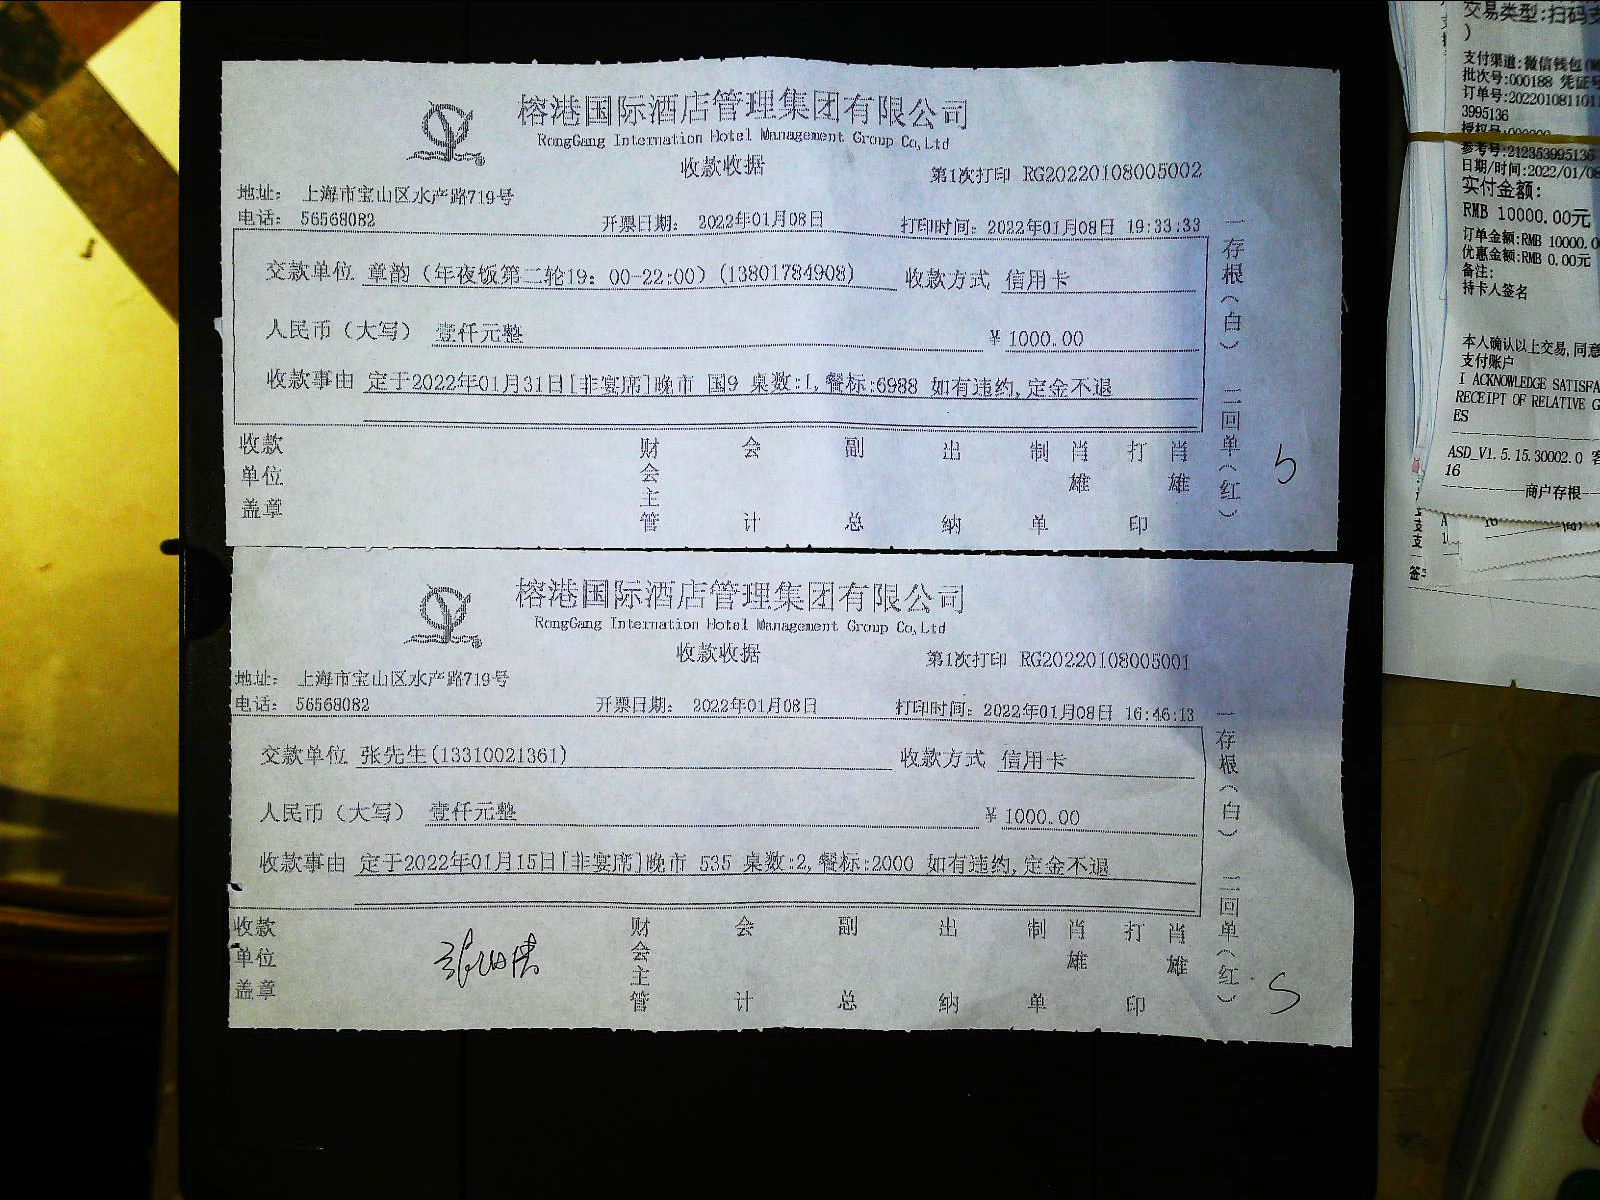 榕港国际酒店管理集团有限公司
RongGang Internation Hotel Management Group Co,Ltd
收款收据
第1次打印 RG20220108005002
地址： 上海市宝山区水产路719号
电话： 56568082 开票日期： 2022年01月08日 打印时间：2022年01月08日 19:33:33
交款单位 章韵（年夜饭第二轮19：00-22:00）(13801784908) 收款方式 信用卡
人民币（大写） 壹仟元整 ￥1000.00
收款事由 定于2022年01月31日[非宴席]晚市 国9 桌数:1,餐标:6988 如有违约,定金不退
收款单位盖章 财会主管 会计 副总 出纳 制单 肖雄 打印 肖雄
一存根（白） 二回单（红）
5
榕港国际酒店管理集团有限公司
RongGang Internation Hotel Management Group Co,Ltd
收款收据
第1次打印 RG20220108005001
地址： 上海市宝山区水产路719号
电话： 56568082 开票日期： 2022年01月08日 打印时间：2022年01月08日 16:46:13
交款单位 张先生(13310021361) 收款方式 信用卡
人民币（大写） 壹仟元整 ￥1000.00
收款事由 定于2022年01月15日[非宴席]晚市 535 桌数:2,餐标:2000 如有违约,定金不退
收款单位盖章 财会主管 会计 副总 出纳 制单 肖雄 打印 肖雄
一存根（白） 二回单（红）
5
交易类型:扫码支
)
支付渠道:微信钱包
批次号:000188 凭证号
订单号:2022010811011
3995136
参考号:212353995136
日期/时间:2022/01/08
实付金额:
RMB 10000.00元
订单金额:RMB 10000.0
优惠金额:RMB 0.00元
备注:
持卡人签名
本人确认以上交易,同意
支付账户
I ACKNOWLEDGE SATISFA
RECEIPT OF RELATIVE G
ES
ASD_V1.5.15.30002.0 客
16
商户存根